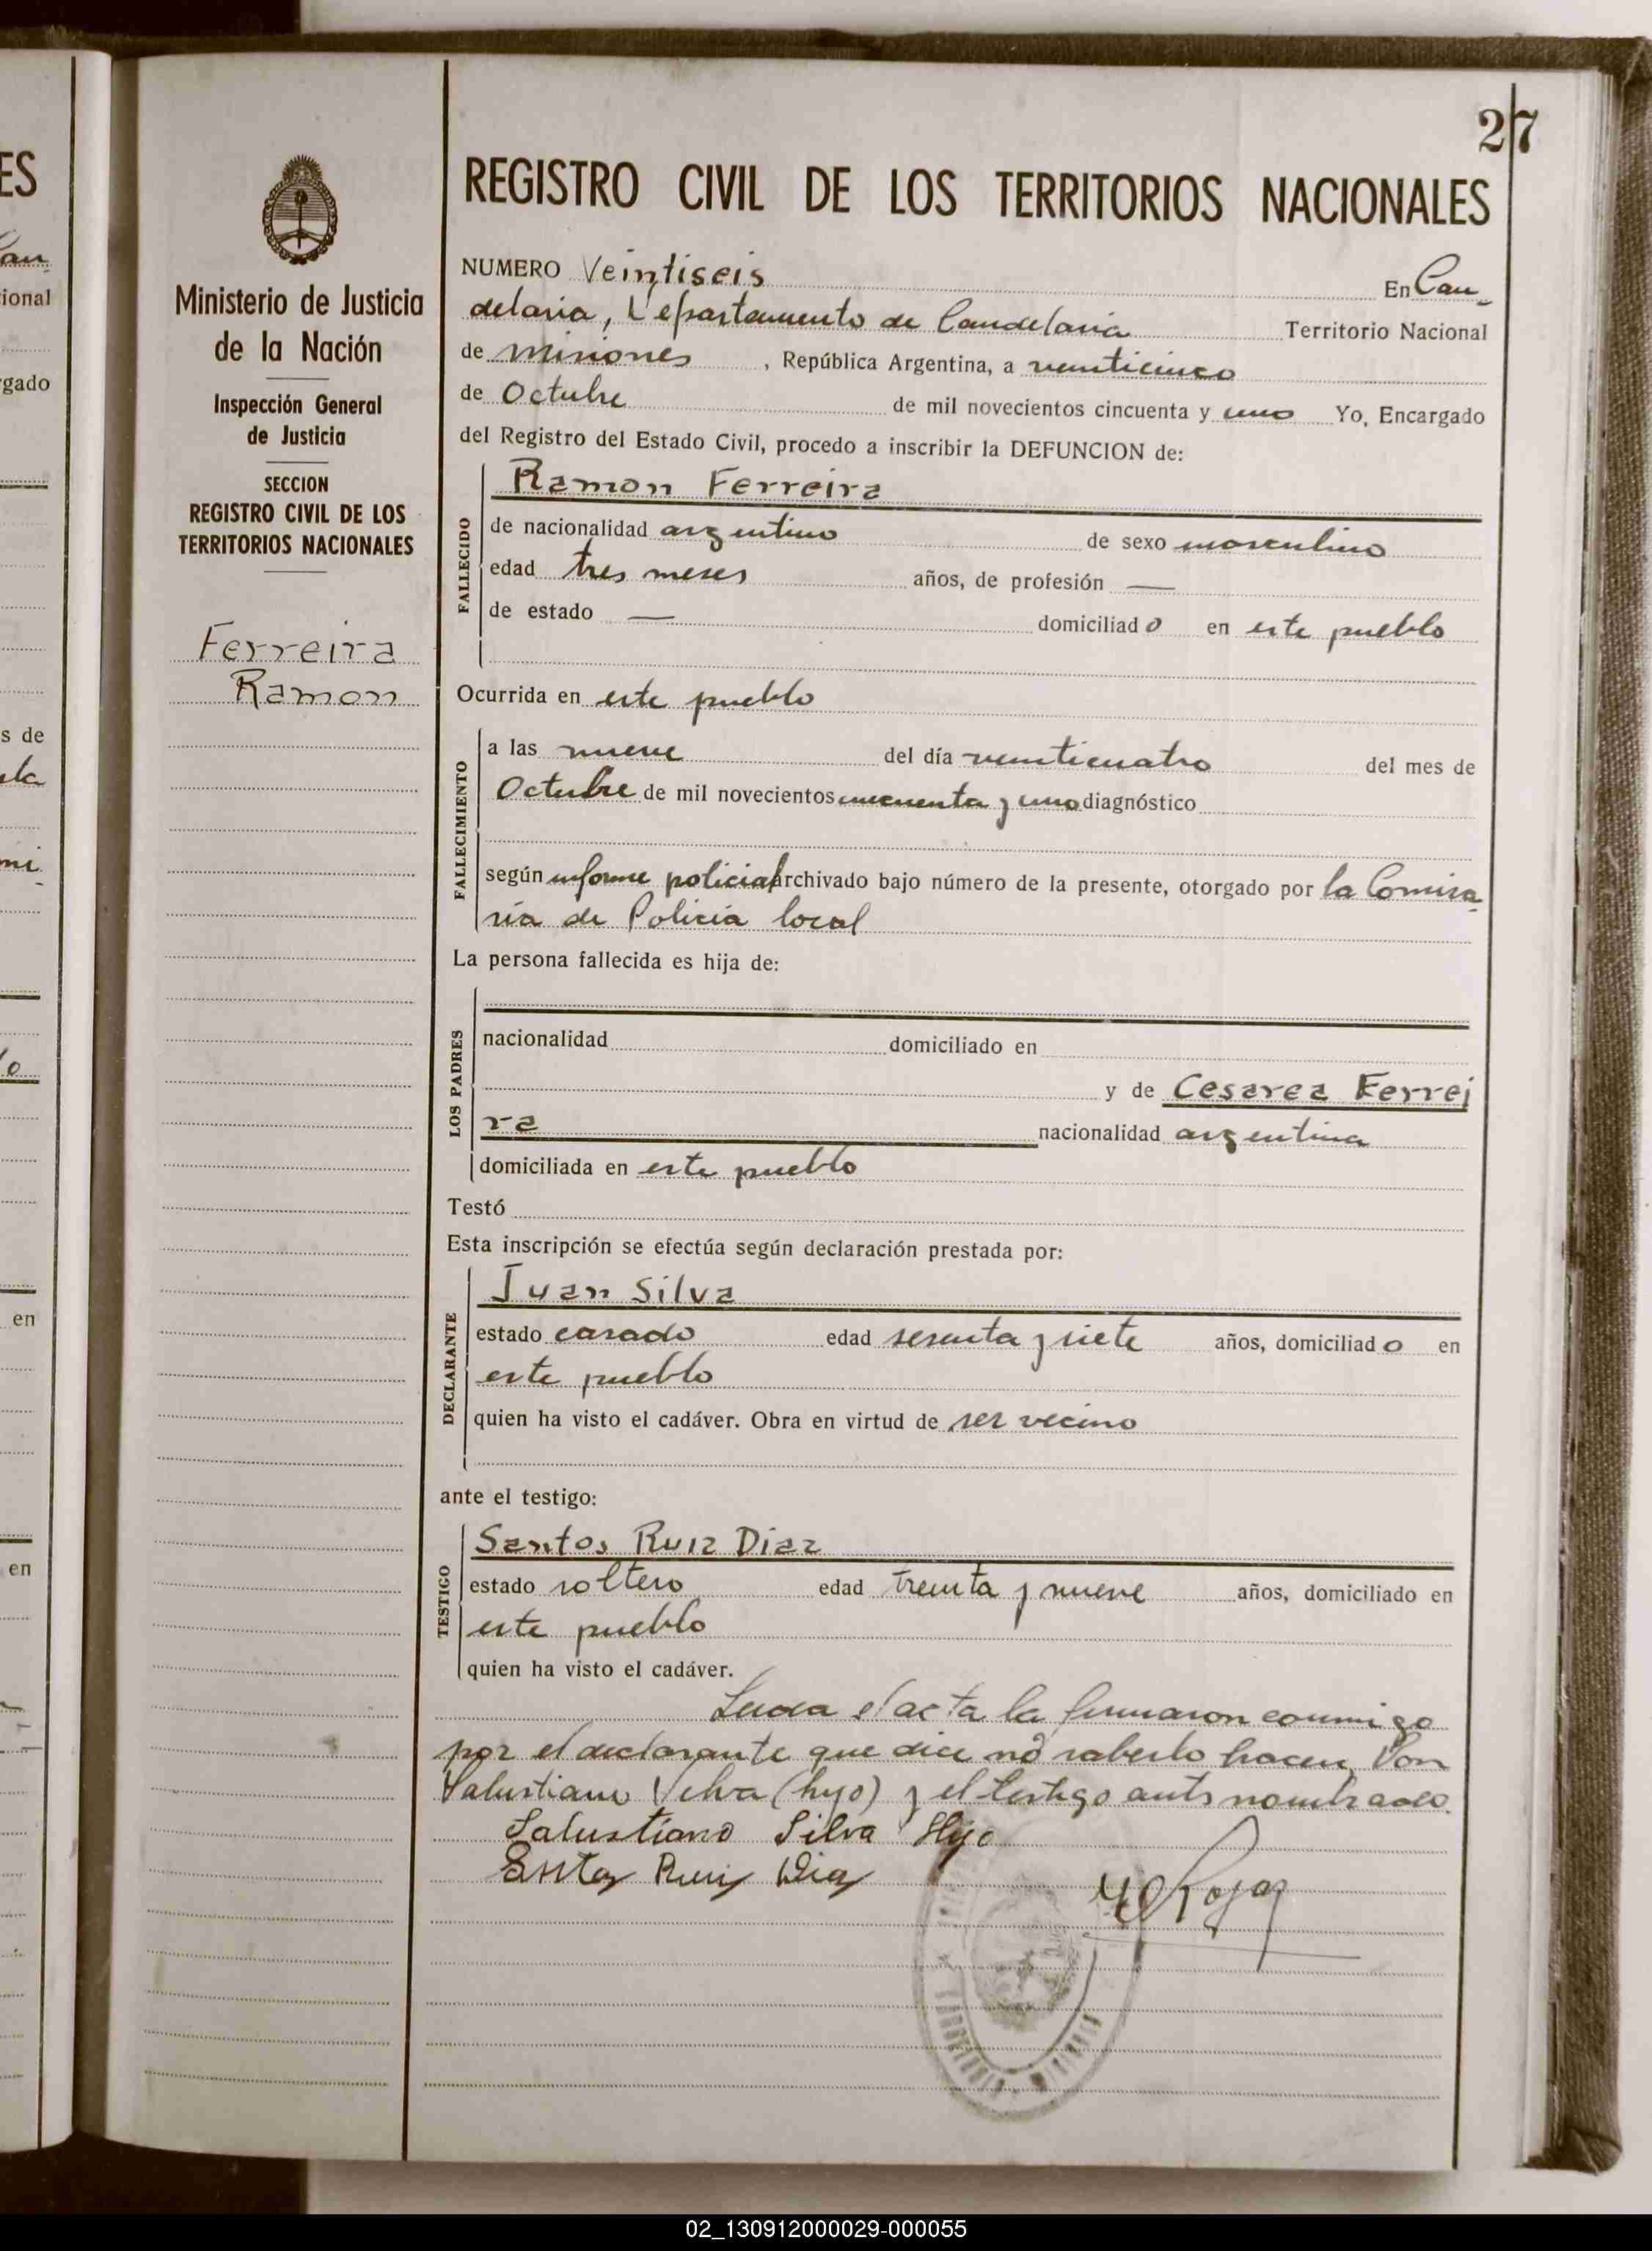 27
REGISTRO CIVIL DE LOS TERRITORIOS NACIONALES
Ministerio de Justicia
de la Nación
Inspección General
de Justicia
SECCION
REGISTRO CIVIL DE LOS
TERRITORIOS NACIONALES
Ferreira
Ramon
NUMERO Veintiseis En Can-
delaria, Departamento de Candelaria Territorio Nacional
de Misiones, República Argentina, a veinticinco
de Octubre de mil novecientos cincuenta y uno Yo, Encargado
del Registro del Estado Civil, procedo a inscribir la DEFUNCION de:
FALLECIDO
Ramon Ferreira
de nacionalidad argentino de sexo masculino
edad tres meses años, de profesión —
de estado — domiciliado en este pueblo
Ocurrida en este pueblo
FALLECIMIENTO
a las nueve del día veinticuatro del mes de
Octubre de mil novecientos cincuenta y uno diagnóstico
según informe policial archivado bajo número de la presente, otorgado por la Comisa-
ria de Policia local
La persona fallecida es hija de:
LOS PADRES
nacionalidad domiciliado en
y de Cesarea Ferrei
ra nacionalidad argentina
domiciliada en este pueblo
Testó
Esta inscripción se efectúa según declaración prestada por:
DECLARANTE
Juan Silva
estado casado edad sesenta y siete años, domiciliado en
este pueblo
quien ha visto el cadáver. Obra en virtud de ser vecino
ante el testigo:
TESTIGO
Santos Ruiz Diaz
estado soltero edad treinta y nueve años, domiciliado en
este pueblo
quien ha visto el cadáver.
Leida el acta la firmaron conmigo
por el declarante que dice no saberlo hacer, Don
Salustiano Silva (hijo) y el testigo antes nombrado.
Salustiano Silva Hijo
Santos Ruiz Diaz
Rojas
ES
Can
ional
rgado
s de
en
en
02_130912000029-000055